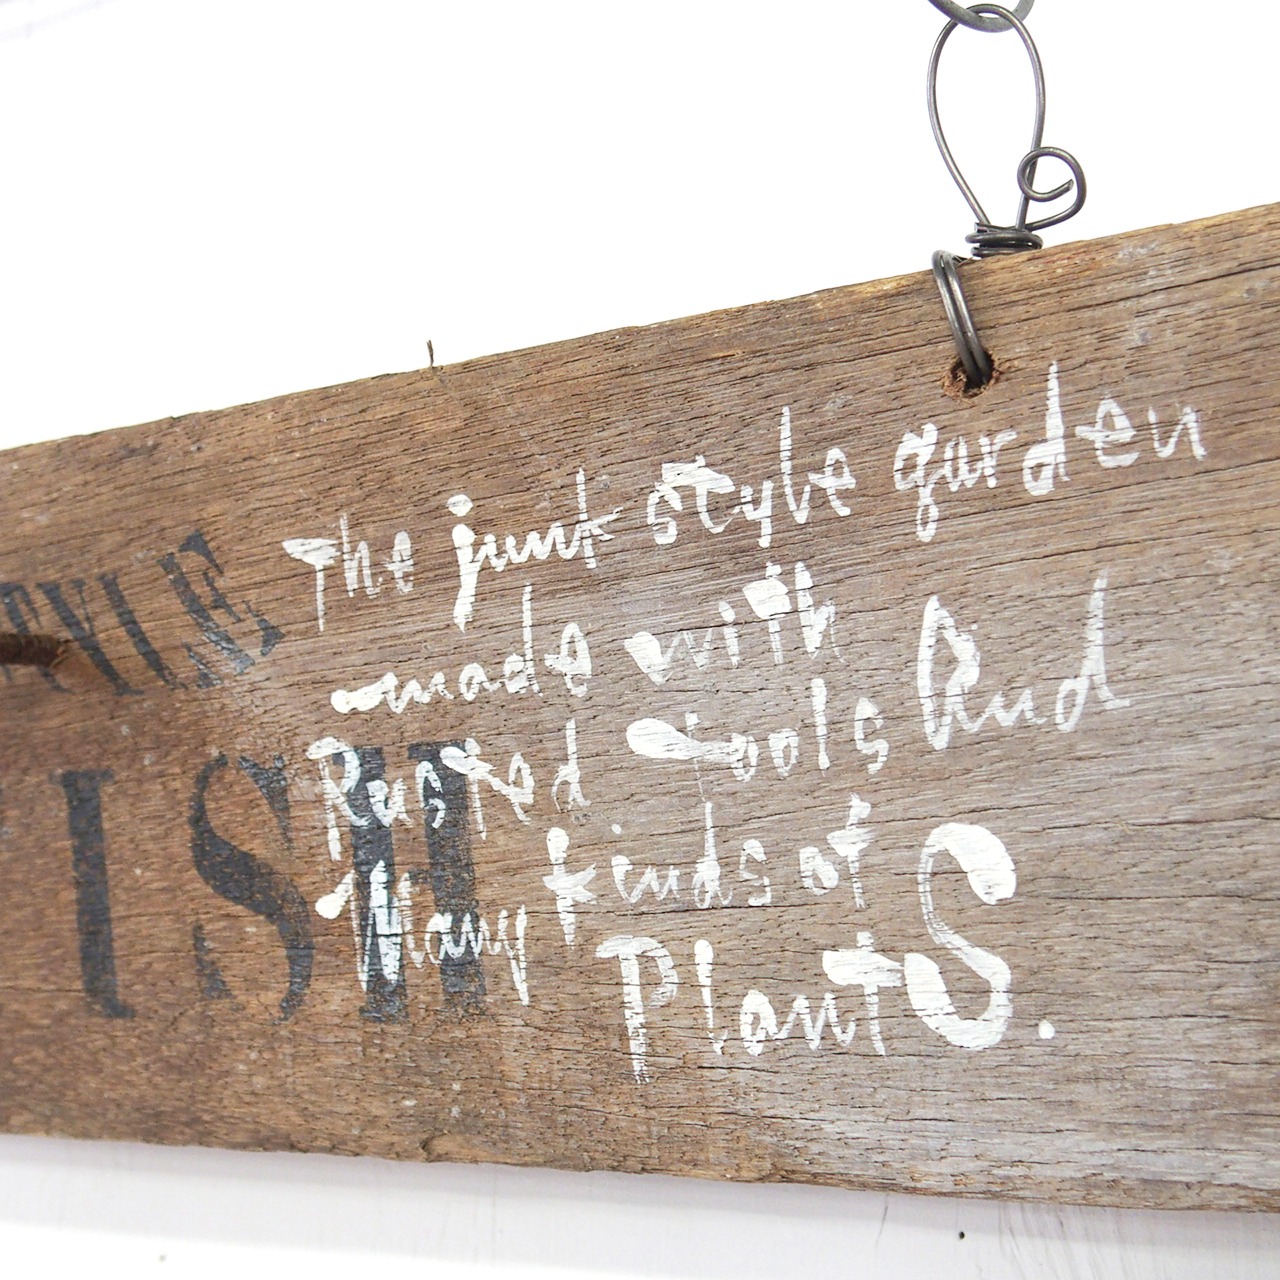 The junk style garden
made with
Rusted tools And
Many kinds of
PlantS.
TYLE
ISH